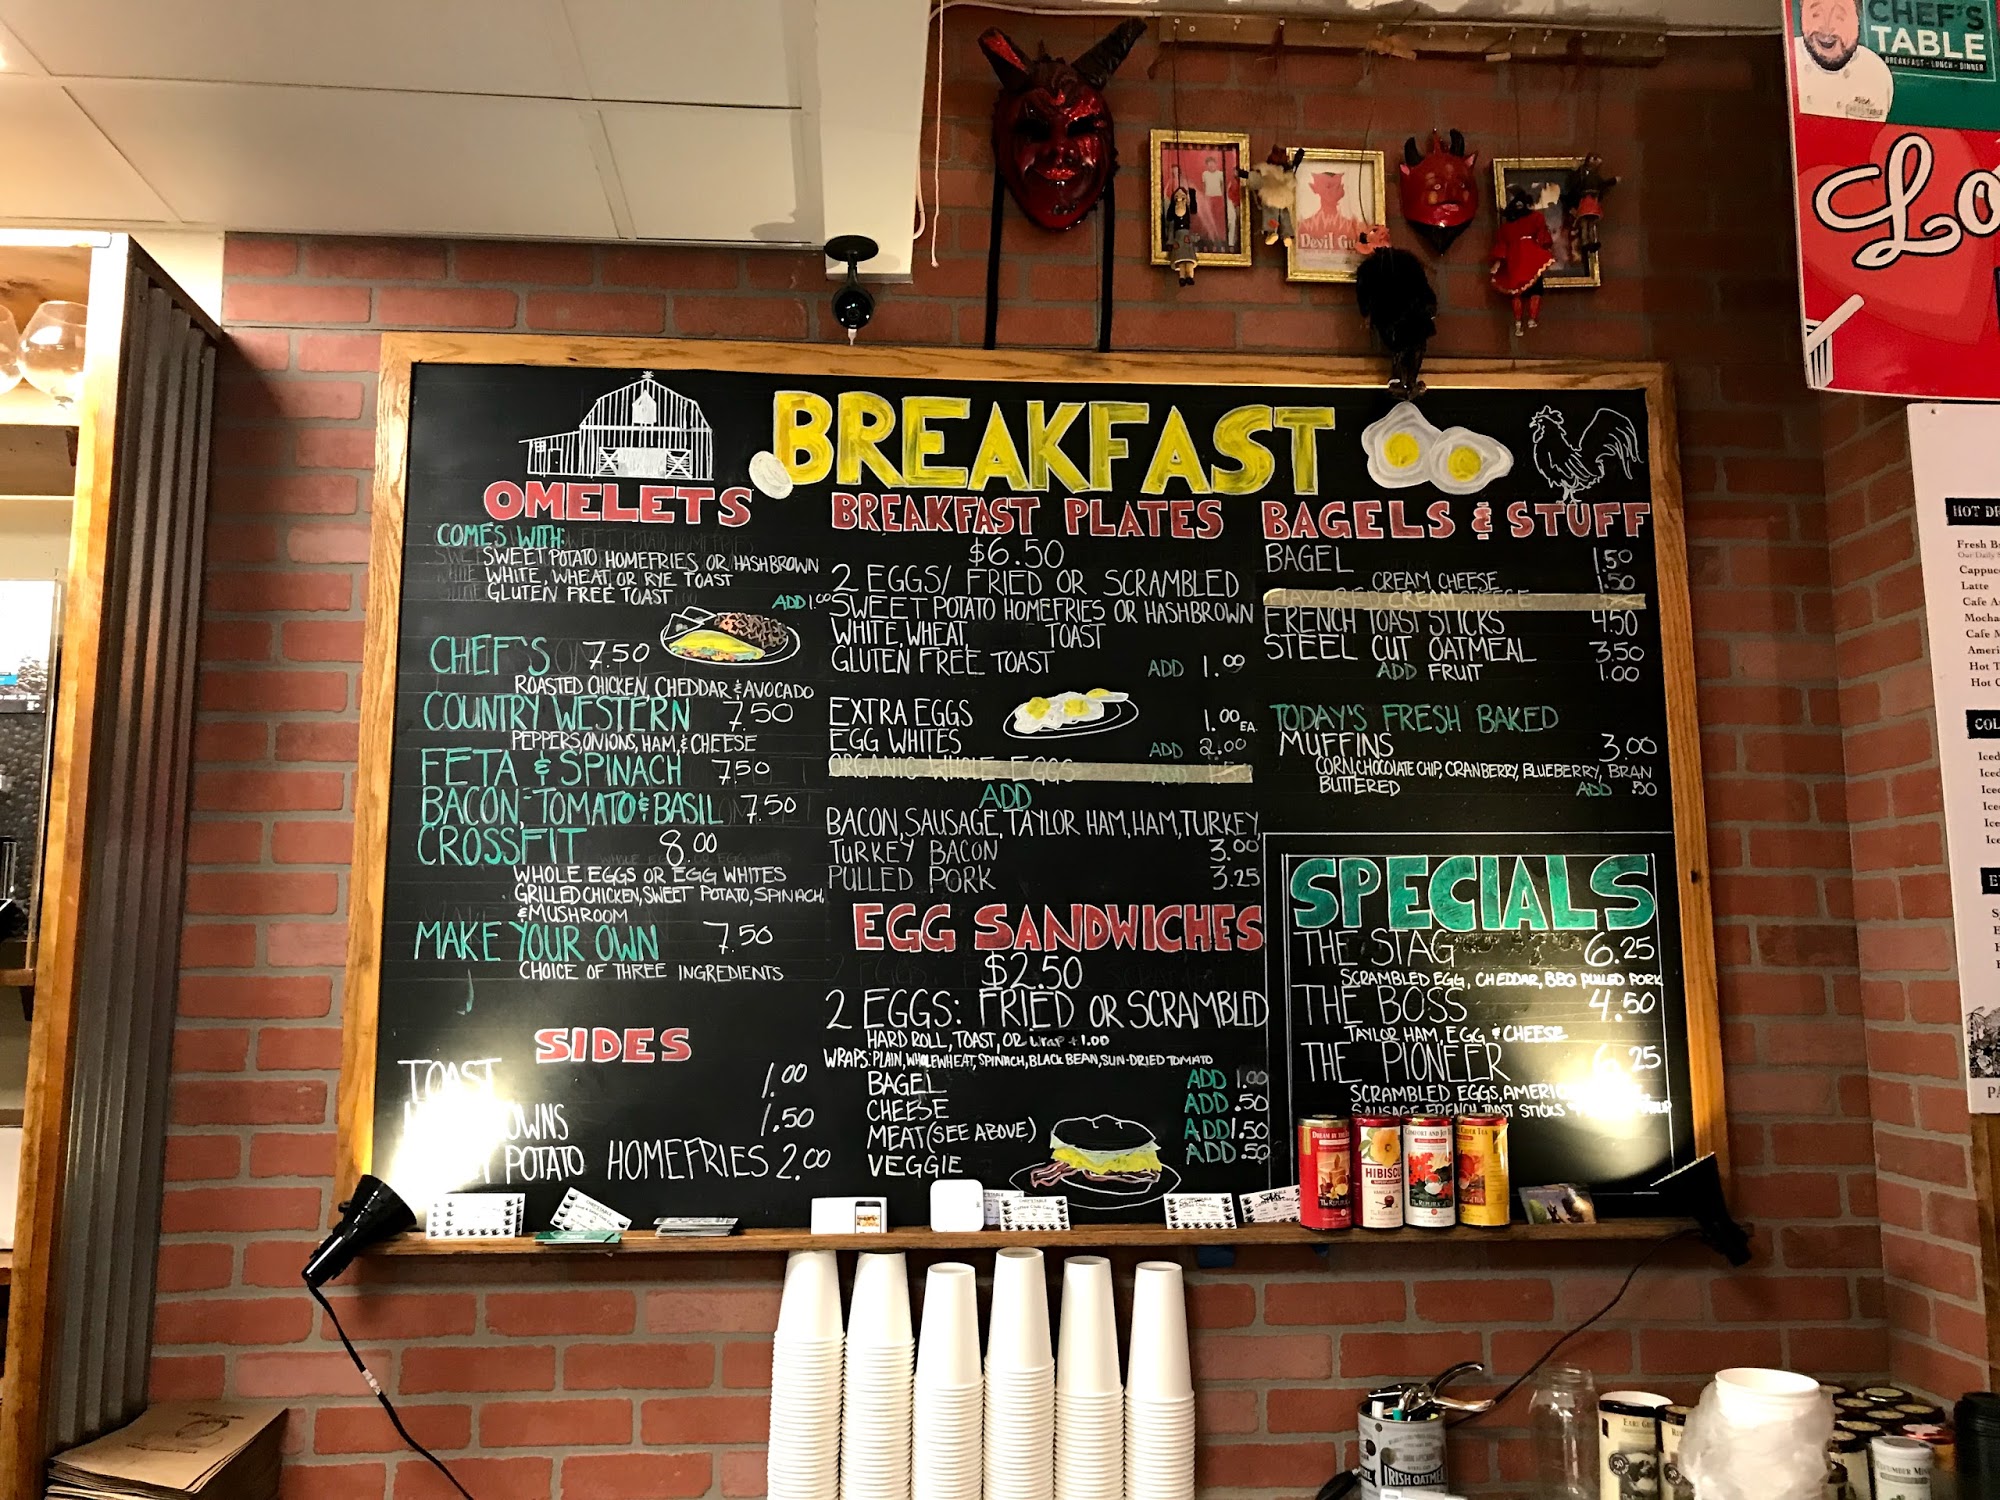 BREAKFAST
OMELETS
COMES WITH:
SWEET POTATO HOMEFRIES OR HASHBROWN
WHITE, WHEAT, OR RYE TOAST
GLUTEN FREE TOAST ADD 1.00
CHEF'S 7.50
ROASTED CHICKEN, CHEDDAR & AVOCADO
COUNTRY WESTERN 7.50
PEPPERS, ONIONS, HAM, & CHEESE
FETA & SPINACH 7.50
BACON, TOMATO & BASIL 7.50
CROSSFIT 8.00
WHOLE EGGS OR EGG WHITES
GRILLED CHICKEN, SWEET POTATO, SPINACH,
& MUSHROOM
MAKE YOUR OWN 7.50
CHOICE OF THREE INGREDIENTS
SIDES
TOAST 1.00
OWNS 1.50
POTATO HOMEFRIES 2.00
BREAKFAST PLATES
$6.50
2 EGGS/ FRIED OR SCRAMBLED
SWEET POTATO HOMEFRIES OR HASHBROWN
WHITE, WHEAT, TOAST
GLUTEN FREE TOAST ADD 1.00
EXTRA EGGS 1.00 EA.
EGG WHITES ADD 2.00
ORGANIC WHOLE EGGS
ADD
BACON, SAUSAGE, TAYLOR HAM, HAM, TURKEY,
TURKEY BACON 3.00
PULLED PORK 3.25
EGG SANDWICHES
$2.50
2 EGGS: FRIED OR SCRAMBLED
HARD ROLL, TOAST, OR Wrap + 1.00
WRAPS: PLAIN, WHOLEWHEAT, SPINACH, BLACK BEAN, SUN-DRIED TOMATO
BAGEL ADD 1.00
CHEESE ADD .50
MEAT (SEE ABOVE) ADD 1.50
VEGGIE ADD .50
BAGELS & STUFF
BAGEL 1.50
CREAM CHEESE 1.50
FLAVORED CREAM CHEESE
FRENCH TOAST STICKS 4.50
STEEL CUT OATMEAL 3.50
ADD FRUIT 1.00
TODAY'S FRESH BAKED
MUFFINS 3.00
CORN, CHOCOLATE CHIP, CRANBERRY, BLUEBERRY, BRAN
BUTTERED ADD .50
SPECIALS
THE STAG 6.25
SCRAMBLED EGG, CHEDDAR, BBQ PULLED PORK
THE BOSS 4.50
TAYLOR HAM, EGG, & CHEESE
THE PIONEER 6.25
SCRAMBLED EGGS, AMERIC
SAUSAGE, FRENCH TOAST STICKS
CHEF'S
TABLE
BREAKFAST - LUNCH - DINNER
Lo
Devil Gu
HOT DR
Fresh B
Cappuc
Latte
Cafe A
Mocha
Cafe M
Ameri
Hot T
Hot C
COL
Iced
Iced
Iced
Ice
Ice
Ice
HIBISCU
IRISH OATME